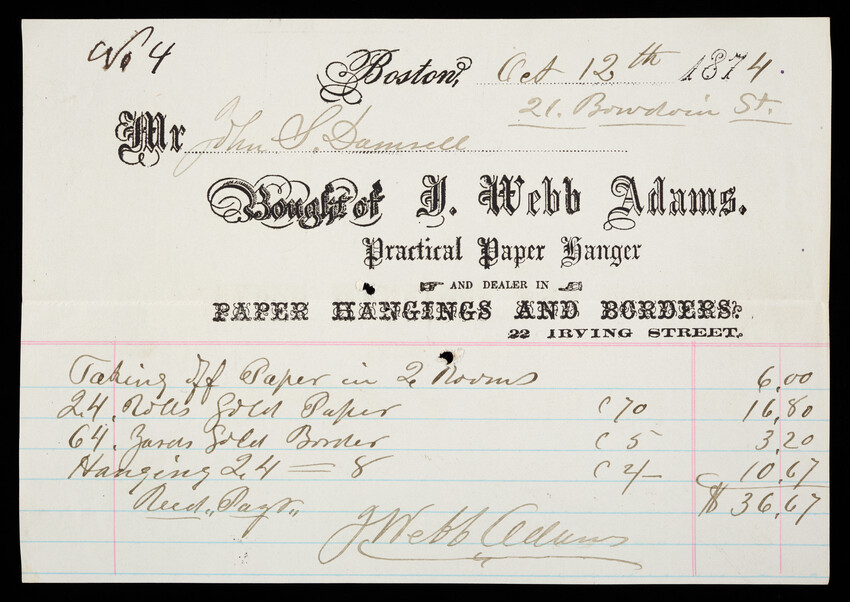 No 4
Boston, Oct 12th 1874.
21. Bowdoin St.
Mr John S. Damrell
Bought of J. Webb Adams.
Practical Paper Hanger
AND DEALER IN
PAPER HANGINGS AND BORDERS.
22 IRVING STREET.
Taking off Paper in 2 Rooms 6,00
24. Rolls Gold Paper C 70 16,80
64. Yards Gold Border C 5 3,20
Hanging 24 = 8 C 4/- 10,67
Recd,, Payt,, $ 36,67
J Webb Adams